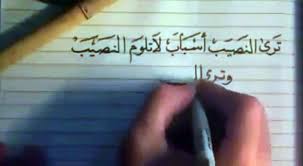 تَرىٰ النَصيبَ أسْبَابَ لاَتلومَ النصِيْبَ
وترى ال